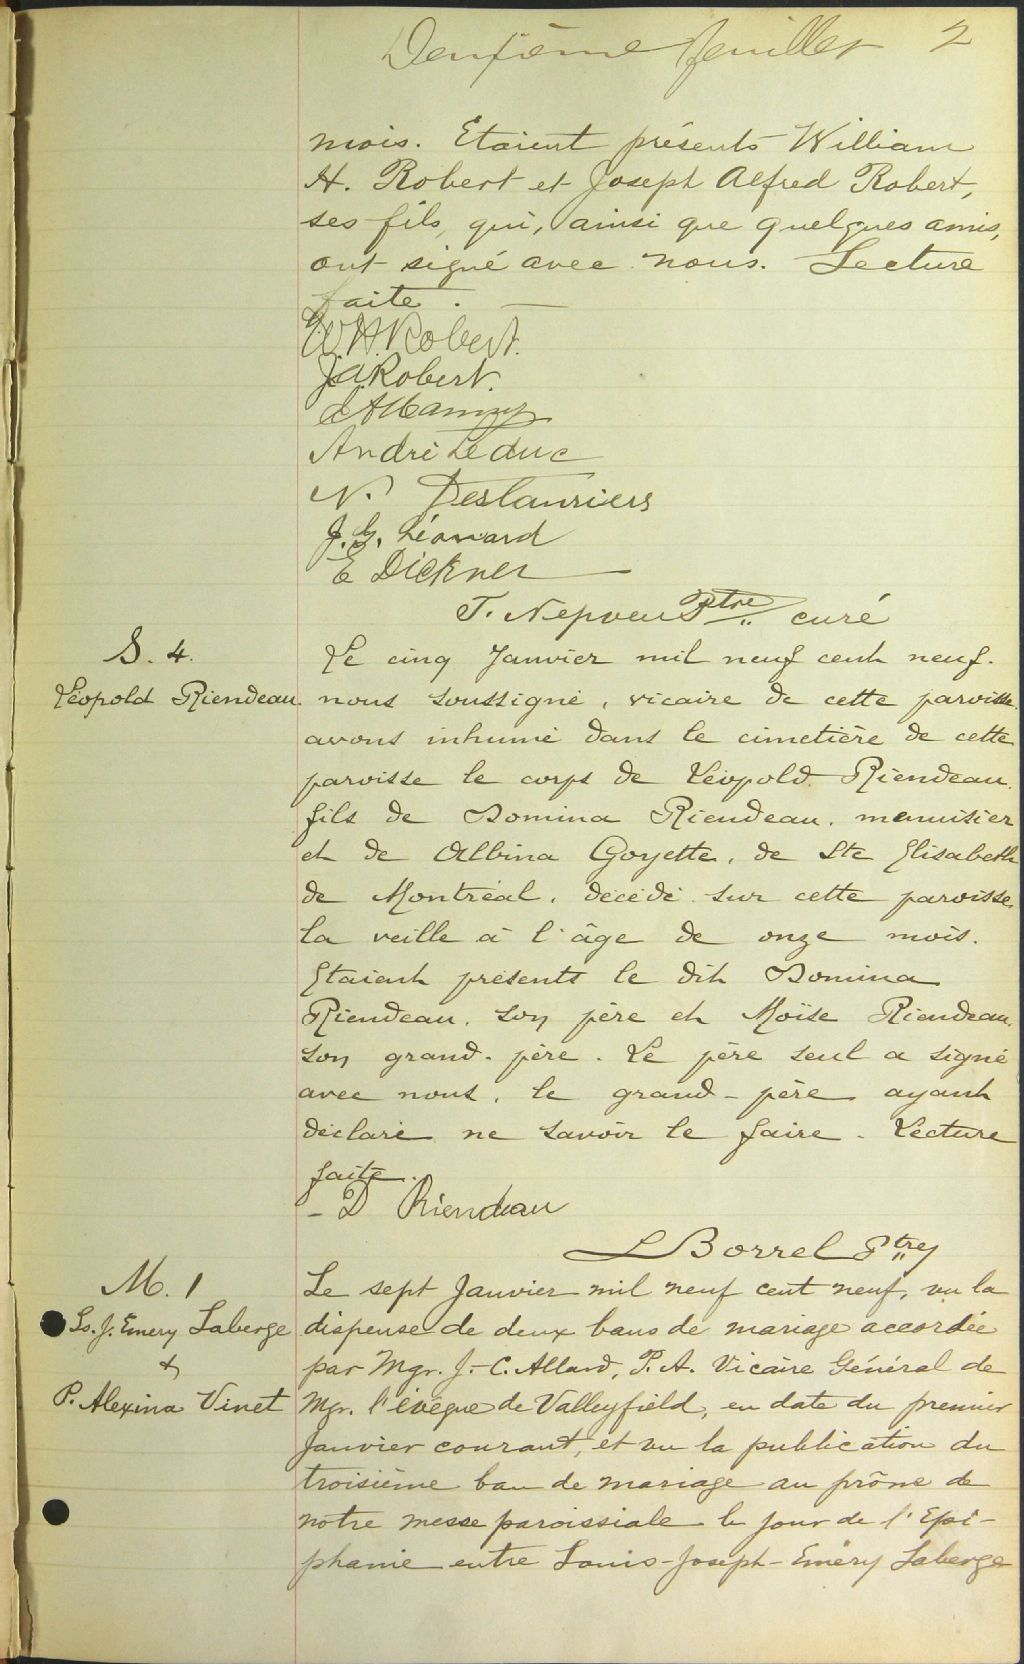 Deuxième feuillet 2
mois. Etaient présents William
H. Robert et Joseph Alfred Robert,
ses fils, qui, ainsi que quelques amis,
ont signé avec nous. Lecture
faite.
W.H. Robert.
J.A. Robert.
André Leduc
N. Deslauriers
J. G. Léonard
E Dickner
T. Nepveu Ptre curé
S. 4.
Léopold Riendeau.
Le cinq Janvier mil neuf cent neuf.
nous soussigné, vicaire de cette paroisse.
avons inhumé dans le cimetière de cette
paroisse le corps de Léopold Riendeau.
fils de Domina Riendeau. menuisier
et de Albina Goyette, de Ste Elisabeth
de Montréal. décédé sur cette paroisse
la veille à l'âge de onze mois.
Etaient présents le dit Domina
Riendeau. son père et Moïse Riendeau.
son grand-père. Le père seul a signé
avec nous. le grand-père ayant
déclaré ne savoir le faire. Lecture
faite.
- D Riendeau
L Borrel Ptre
M. 1
Ls. J. Emery Laberge
&
P. Alexina Vinet
Le sept Janvier mil neuf cent neuf, vu la
dispense de deux bans de mariage accordée
par Mgr. J.-C. Allard, P. A. Vicaire Général de
Mgr. l'évêque de Valleyfield, en date du premier
Janvier courant, et vu la publication du
troisième ban de mariage au prône de
notre messe paroissiale le jour de l'Epi-
phanie entre Louis-Joseph-Eméry Laberge